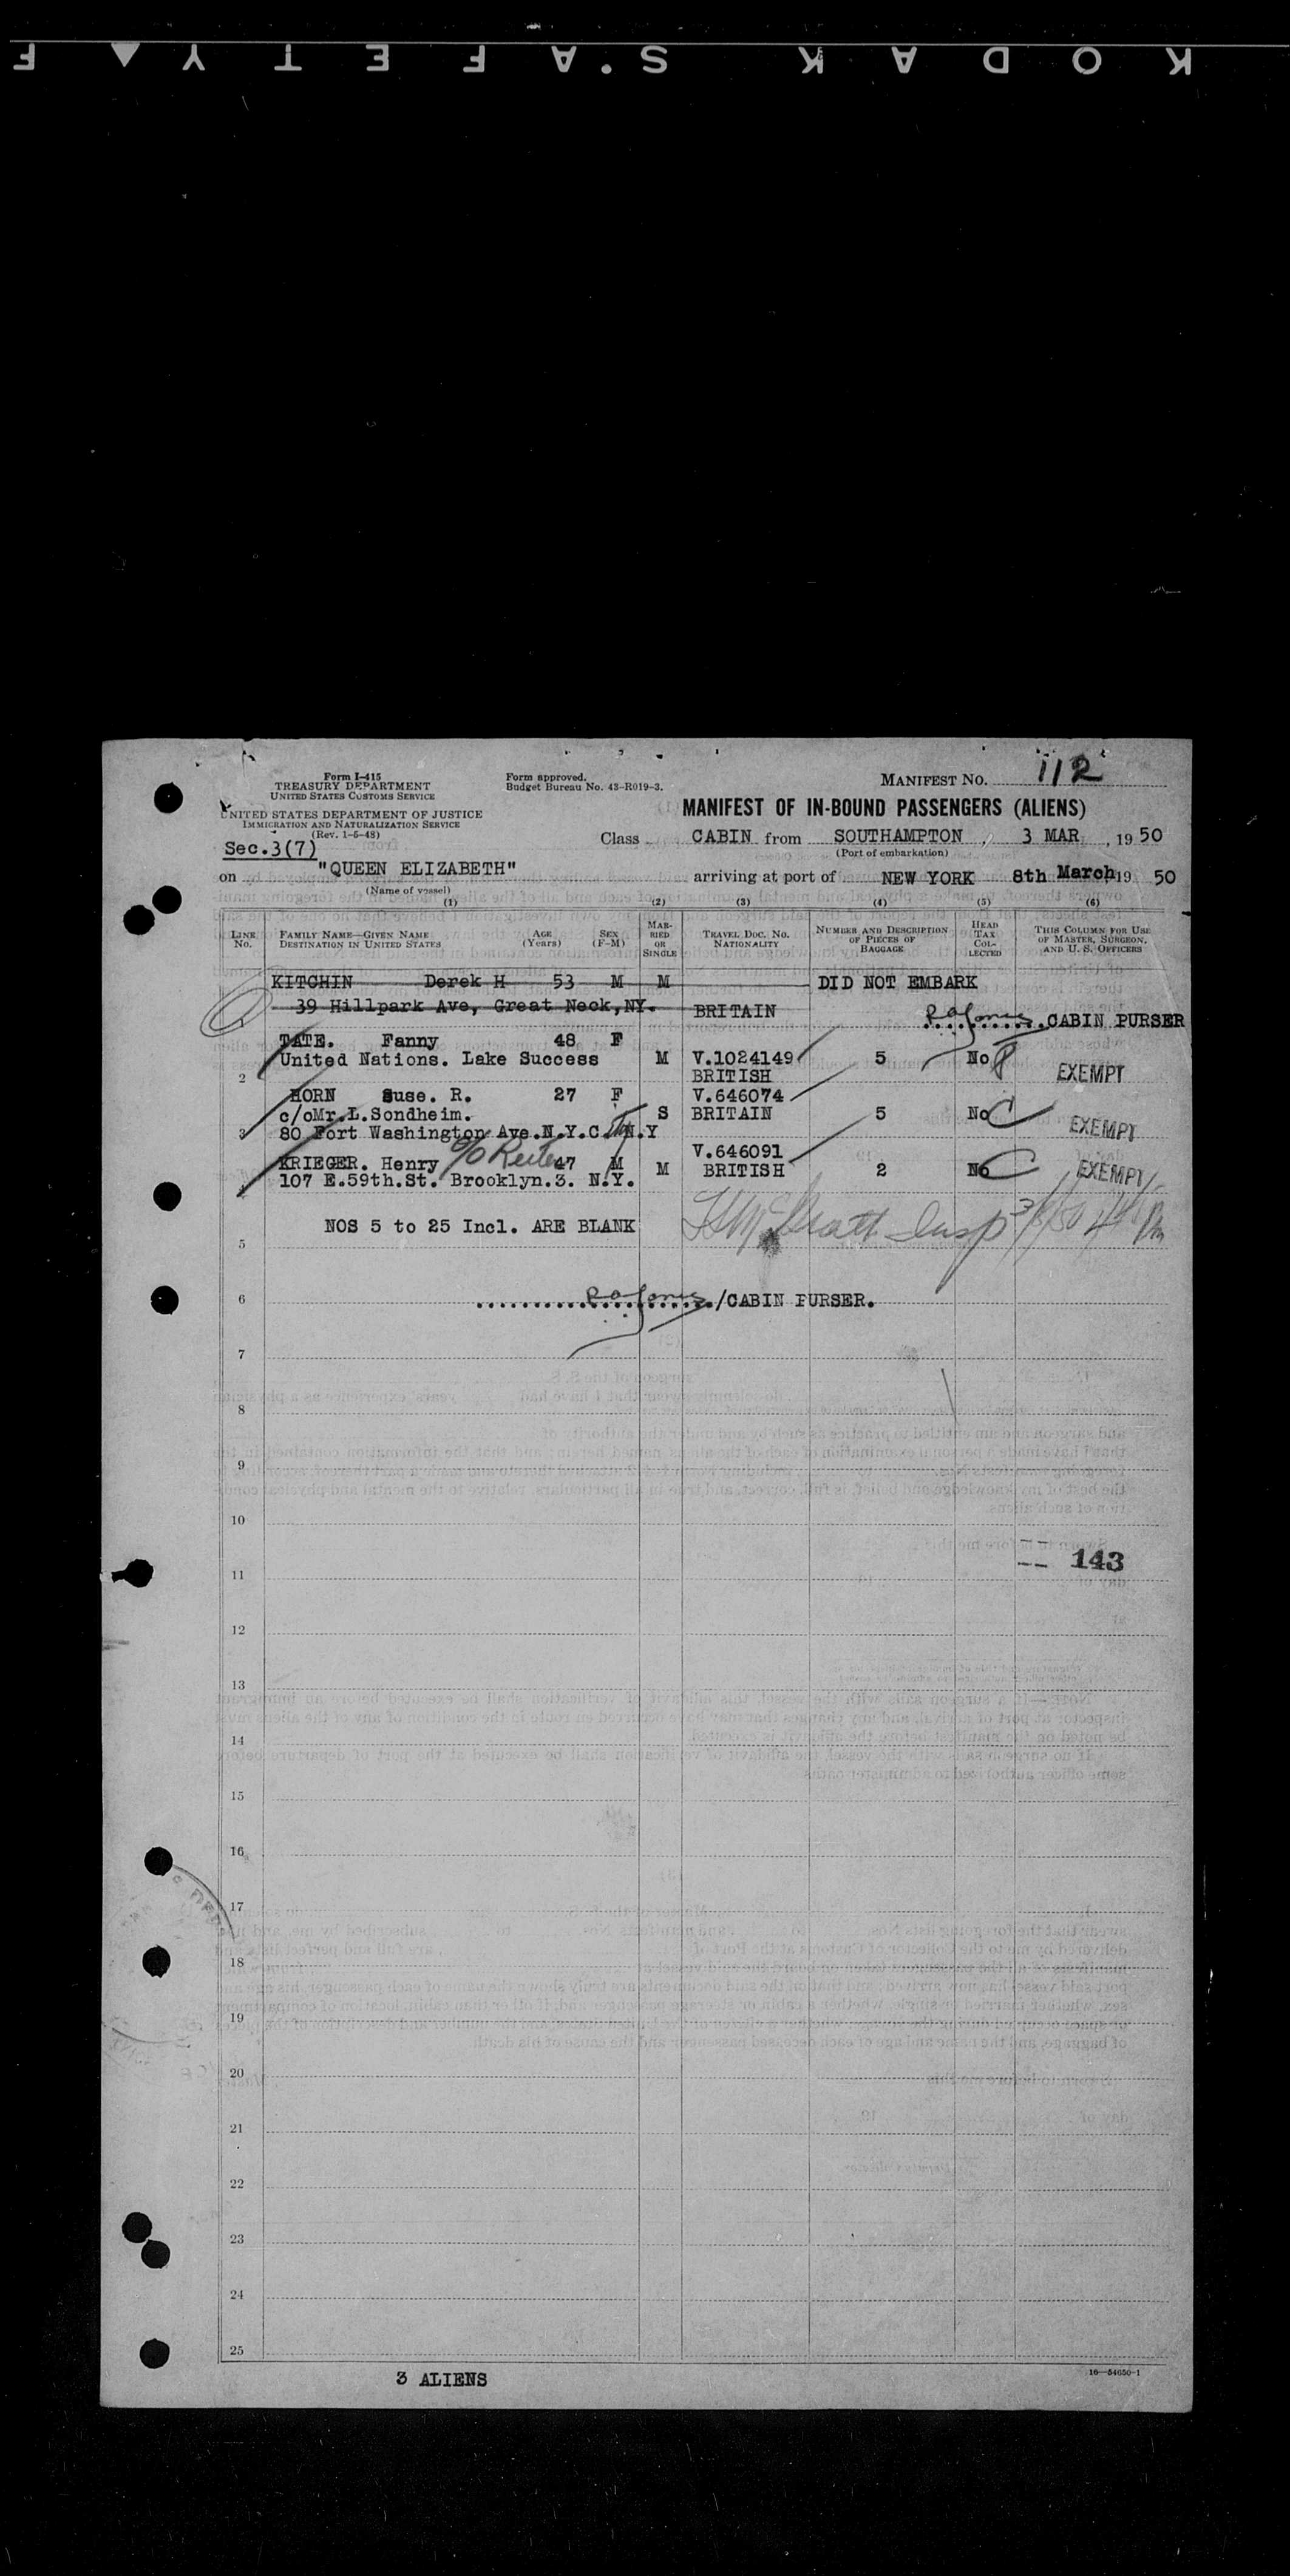 KODAK S·AFETY
Form I-415
TREASURY DEPARTMENT
UNITED STATES CUSTOMS SERVICE
UNITED STATES DEPARTMENT OF JUSTICE
IMMIGRATION AND NATURALIZATION SERVICE
(Rev. 1-5-48)
Form approved.
Budget Bureau No. 43-R019-3.
MANIFEST NO. 112
MANIFEST OF IN-BOUND PASSENGERS (ALIENS)
Sec.3(7)
Class CABIN from SOUTHAMPTON, 3 MAR, 1950
(Port of embarkation)
on "QUEEN ELIZABETH" arriving at port of NEW YORK 8th March 19 50
(Name of vessel)
(1) (2) (3) (4) (5) (6)
LINE NO. FAMILY NAME—GIVEN NAME DESTINATION IN UNITED STATES AGE (Years) SEX (F-M) MARRIED OR SINGLE TRAVEL DOC. NO. NATIONALITY NUMBER AND DESCRIPTION OF PIECES OF BAGGAGE HEAD TAX COLLECTED THIS COLUMN FOR USE OF MASTER, SURGEON, AND U. S. OFFICERS
KITCHIN Derek H 53 M M DID NOT EMBARK
39 Hillpark Ave, Great Neck,NY. BRITAIN
CABIN PURSER
TATE. Fanny 48 F
United Nations. Lake Success M V.1024149 5 No
2 BRITISH EXEMPT
HORN Suse. R. 27 F V.646074
c/oMr.L.Sondheim. S BRITAIN 5 No
3 80 Fort Washington Ave.N.Y.C. N.Y EXEMPT
V.646091
KRIEGER. Henry c/o Reiter 47 M M BRITISH 2 No EXEMPT
107 E.59th.St. Brooklyn.3. N.Y.
NOS 5 to 25 Incl. ARE BLANK
5
6 /CABIN PURSER.
7
8
9
10
-- 143
11
12
13
14
15
16
17
18
19
20
21
22
23
24
25
3 ALIENS
16—54650-1